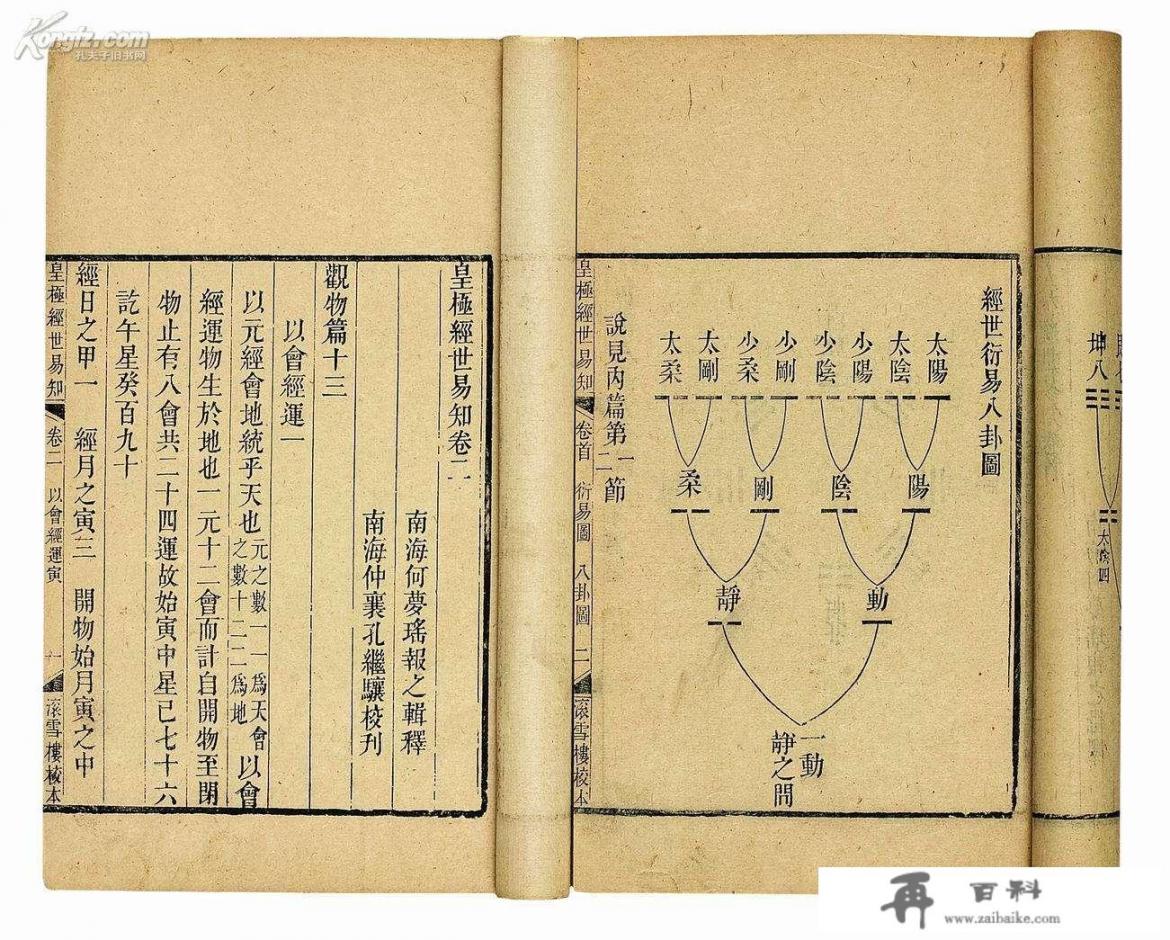 Kongfz.com
孔夫子旧书网
坤八
太陰四
經世衍易八卦圖
太陽
太陰
少陽
少陰
少剛
少柔
太剛
太柔
陽
陰
剛
柔
動
靜
一動
靜之間
說見內篇第一二節
皇極經世易知 卷首 衍易圖 八卦圖 二 滚雪樓校本
皇極經世易知卷二
南海何夢瑤報之輯釋
南海仲襄孔繼驤校刊
觀物篇十三
以會經運一
以元經會地統乎天也元之數一一爲天會之數十二二爲地以會
經運物生於地也一元十二會而計自開物至閉
物止有八會共二十四運故始寅中星已七十六
訖午星癸百九十
經日之甲一 經月之寅三 開物始月寅之中
皇極經世易知 卷二 以會經運寅 一 滚雪樓校本
再 百科
www.zaibaike.com